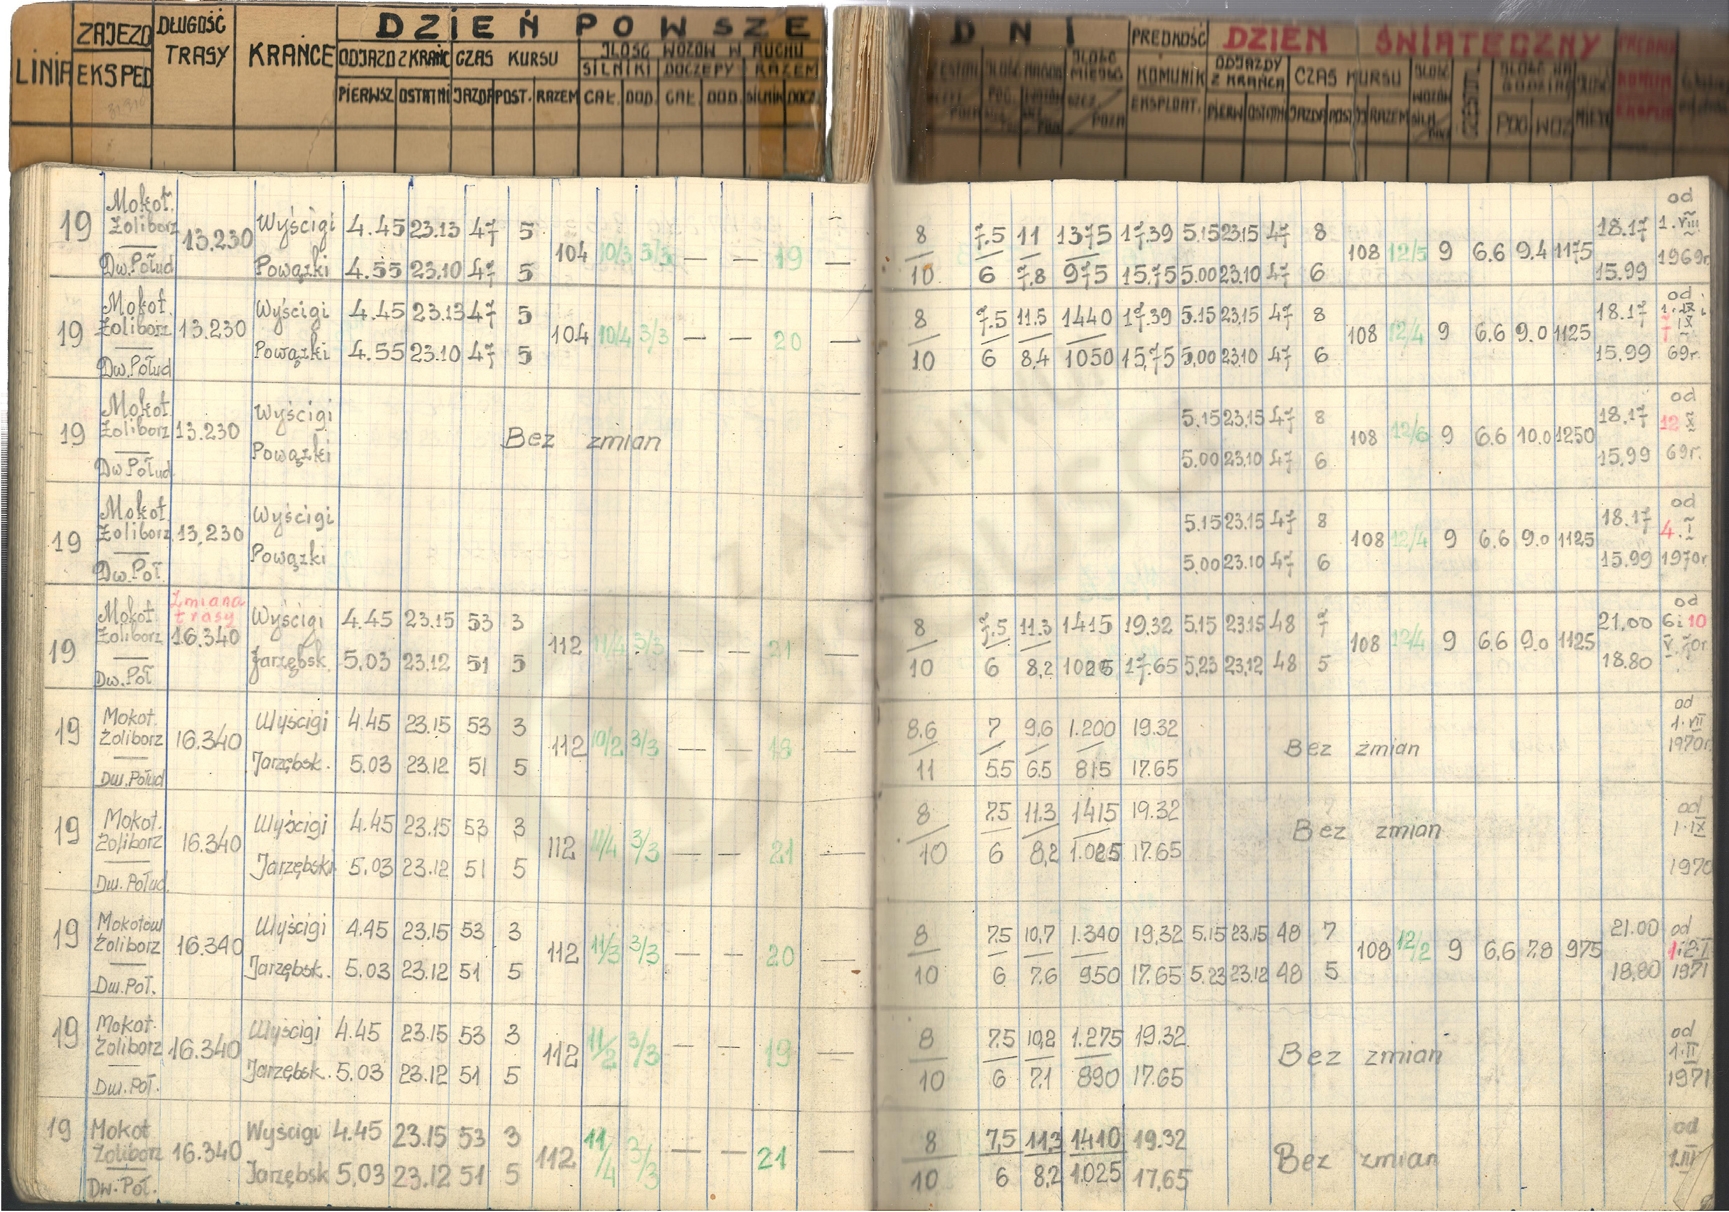 DZIEŃ POWSZE DNI
LINIA ZAJEZD EKSPED DŁUGOŚĆ TRASY KRAŃCE
ODJAZD Z KRAŃC CZAS KURSU ILOŚĆ WOZÓW W RUCHU
SILNIKI DOCZEPY RAZEM
PIERWSZ OSTATNI JAZDA POST. RAZEM CAŁ. DOD. CAŁ. DOD. SILNIK DOCZ.
PRĘDKOŚĆ KOMUNIK EKSPLOAT.
DZIEŃ ŚWIĄTECZNY
ODJAZDY Z KRAŃCA CZAS KURSU
PIERW OSTATN JAZDA POST RAZEM
POC WOZ
19 Mokot. Żoliborz Dw.Połud 13.230
Wyścigi 4.45 23.13 47 5 104 10/3 3/3 — — 19 —
Powązki 4.55 23.10 47 5
8 7.5 11 1375 17.39 5.15 23.15 47 8 108 12/5 9 6.6 9.4 1175 18.17
10 6 7.8 975 15.75 5.00 23.10 47 6 15.99
od 1.VIII 1969r
19 Mokot. Żoliborz Dw.Połud 13.230
Wyścigi 4.45 23.13 47 5 104 10/4 3/3 — — 20 —
Powązki 4.55 23.10 47 5
8 7.5 11.5 1440 17.39 5.15 23.15 47 8 108 12/4 9 6.6 9.0 1125 18.17
10 6 8,4 1050 15,75 5,00 23.10 47 6 15.99
od 69r.
19 Mokot. Żoliborz Dw.Połud 13.230
Wyścigi
Powązki
Bez zmian
5.15 23.15 47 8 108 12/6 9 6.6 10.0 1250 18.17
5.00 23.10 47 6 15,99
od 12 X 69r.
19 Mokot. Żoliborz Dw.Poł. 13.230
Wyścigi
Powązki
5.15 23.15 47 8 108 12/4 9 6.6 9.0 1125 18.17
5,00 23.10 47 6 15.99
od 4.I 1970r
Zmiana trasy
19 Mokot Żoliborz Dw.Poł 16.340
Wyścigi 4.45 23.15 53 3 112 11/4 3/3 — — 21 —
Jarzębsk. 5.03 23.12 51 5
8 7.5 11.3 1415 19.32 5,15 23.15 48 7 108 12/4 9 6.6 9.0 1125 21.00
10 6 8,2 1025 17.65 5,23 23,12 48 5 18.80
od 6 i 10 V.70r.
19 Mokot. Żoliborz Dw.Połud 16.340
Wyścigi 4.45 23.15 53 3 112 10/2 3/3 — — 18 —
Jarzębsk. 5.03 23.12 51 5
8.6 7 9,6 1.200 19.32
11 5.5 6.5 815 17.65
Bez zmian
od 1.VII 1970r
19 Mokot. Żoliborz Dw.Połud. 16.340
Wyścigi 4.45 23.15 53 3 112 11/4 3/3 — — 21 —
Jarzębski 5.03 23.12 51 5
8 7.5 11.3 1415 19.32
10 6 8,2 1.025 17.65
Bez zmian
od 1.IX 1970
19 Mokotów Żoliborz Dw.Poł. 16.340
Wyścigi 4.45 23.15 53 3 112 11/3 3/3 — — 20 —
Jarzębsk. 5.03 23.12 51 5
8 7.5 10,7 1.340 19,32 5.15 23.15 48 7 108 12/2 9 6,6 7.8 975 21.00
10 6 7.6 950 17.65 5.23 23.12 48 5 18,80
od 1.i2.I 1971
19 Mokot. Żoliborz Dw.Poł. 16.340
Wyścigi 4.45 23.15 53 3 112 11/2 3/3 — — 19 —
Jarzębsk. 5.03 23.12 51 5
8 7.5 10,2 1.275 19.32
10 6 7.1 890 17.65
Bez zmian
od 1.II 1971
19 Mokot Żoliborz Dw.Poł. 16.340
Wyścigi 4.45 23.15 53 3 112 11/4 3/3 — — 21 —
Jarzębsk 5,03 23.12 51 5
8 7,5 11,3 1410 19.32
10 6 8,2 1.025 17,65
Bez zmian
od 1.III